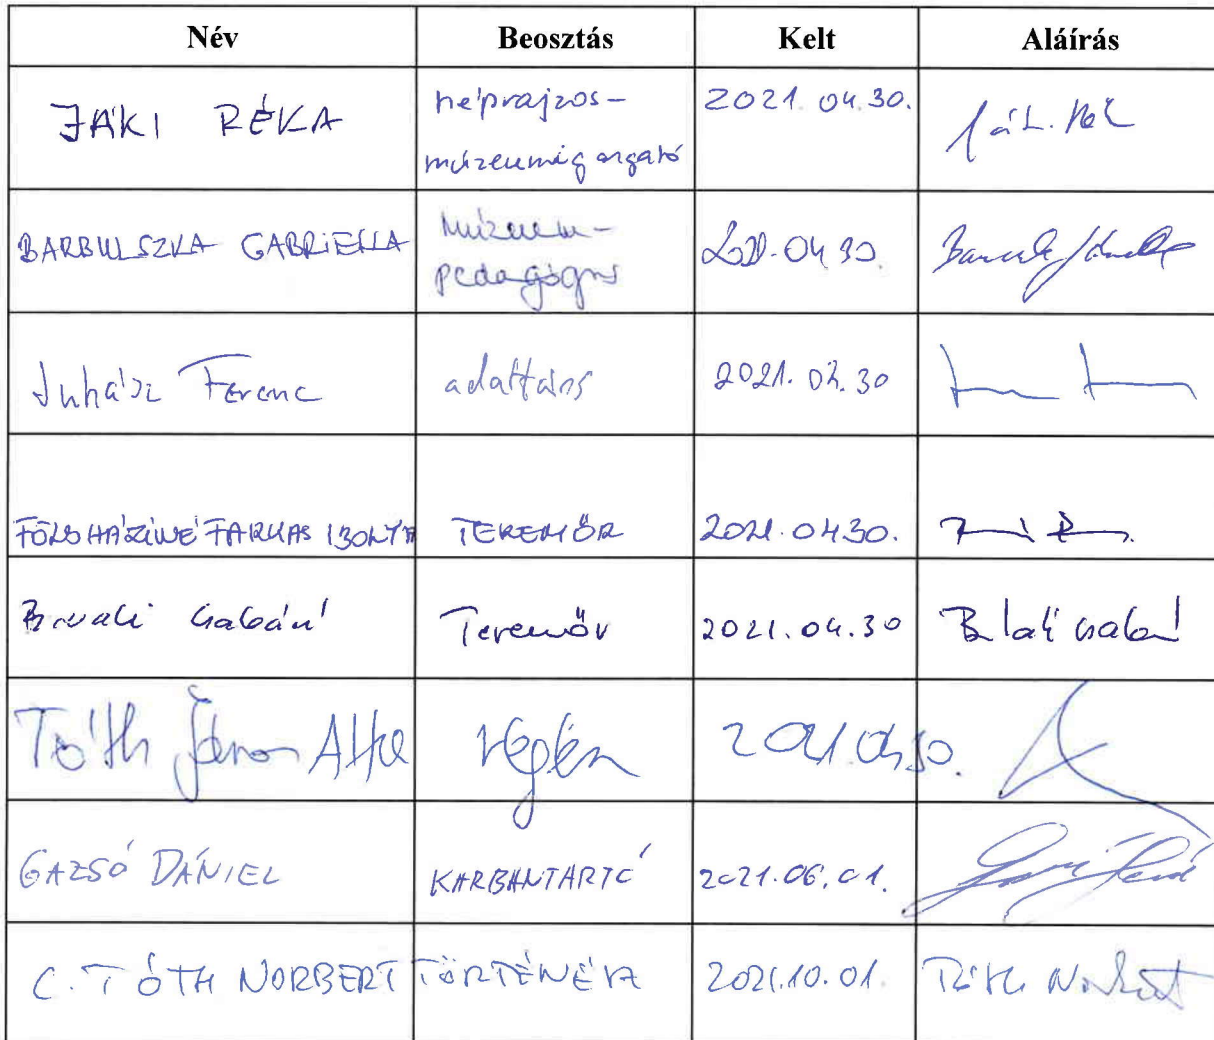 Név Beosztás Kelt Aláírás
JÁKI RÉKA néprajzos- 2021. 04. 30.
múzeumigazgató
BARBULSZKA GABRIELLA múzeum- 2021.04.30.
pedagógus
Juhász Ferenc adattáros 2021. 04. 30
FÖLDHÁZINÉ FARKAS IBOLYA TEREMŐR 2021.04.30.
Csabáné Teremőr 2021.04.30
Tóth János Attila régész 2021.04.30.
GAZSÓ DÁNIEL KARBANTARTÓ 2021.06.01.
C. TÓTH NORBERT TÖRTÉNÉSZ 2021.10.01. Tóth Norbert